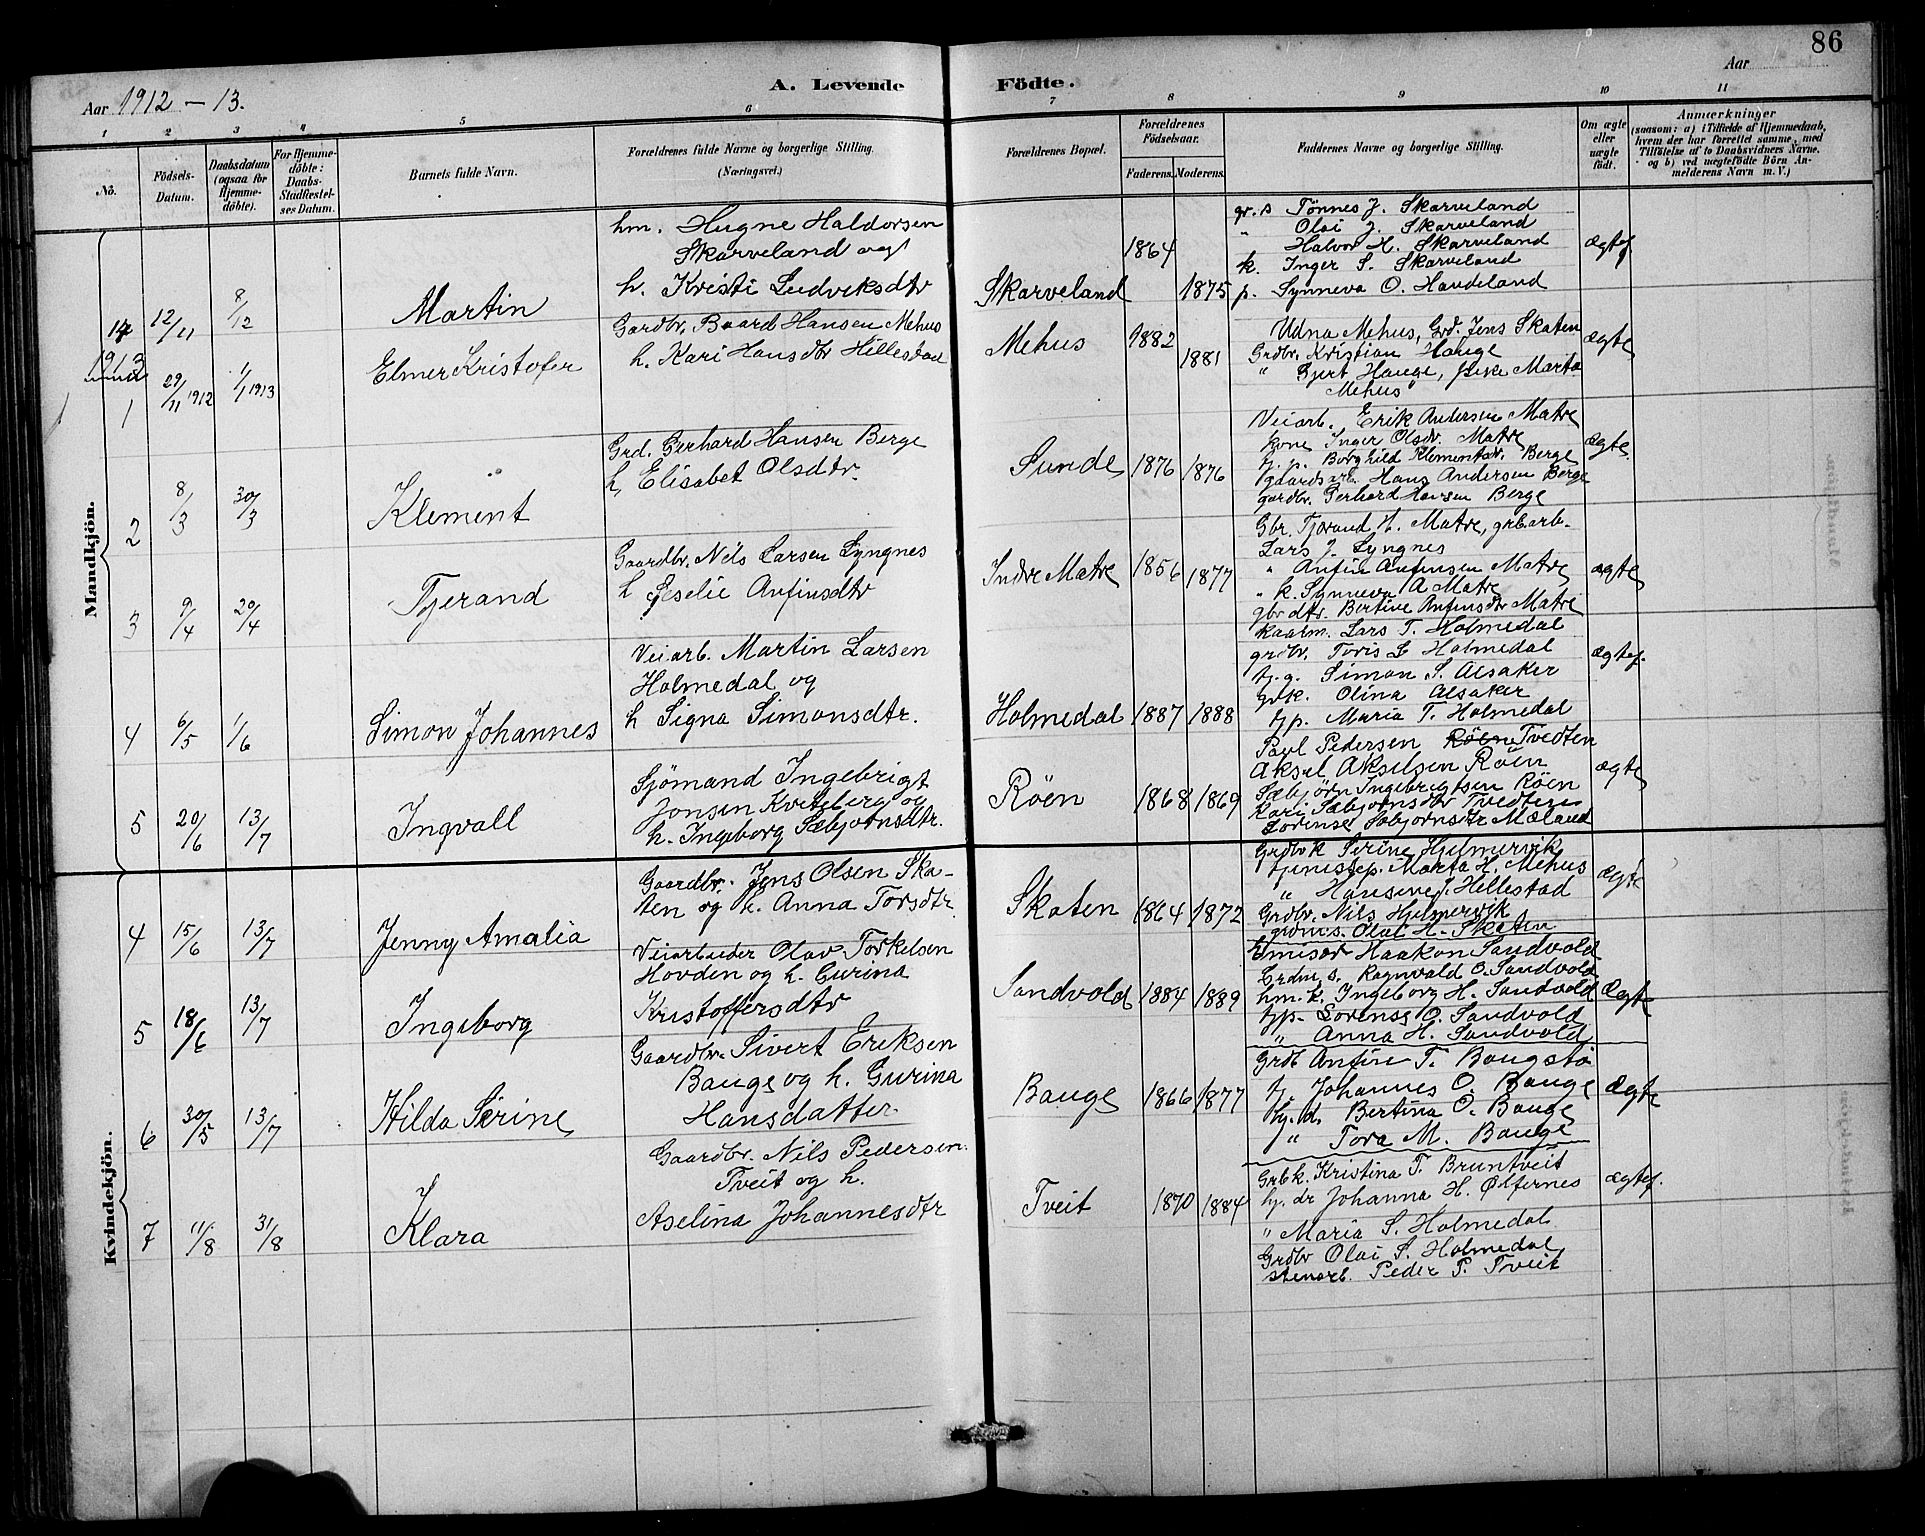 86
Aar 1912 - 13.
A. Levende Födte.
Aar
1 2 3 4 5 6 7 8 9 10 11
Nō.
Födsels-
Datum.
Daabsdatum
(ogsaa for
Hjemme-
döbte).
For Hjemme-
döbte:
Daabs-
Stadfæstel-
ses Datum.
Barnets fulde Navn.
Forældrenes fulde Navne og borgerlige Stilling.
(Næringsvei.)
Forældrenes Bopæl.
Forældrenes
Födselsaar.
Faderens. Moderens.
Faddernes Navne og borgerlige Stilling.
Om ægte
eller
uægte
födt.
Anmærkninger
(saasom: a) i Tilfælde af Hjemmedaab,
hvem der har forrettet samme, med
Tilföielse af to Daabsvidners Navne.
og b) ved uegtefödte Börn An-
melderens Navn m. V.)
Mandkjön.
14 12/11 8/12 Martin
hm. Hugne Haldorsen
Skarveland og
h. Kristi Ludviksdtr
Skarveland 1864 1875
gr. s Tönnes J. Skarveland
" Olai J. Skarveland
Halvor H. Skarveland
k. Inger S. Skarveland
p. Synneva O. Handeland
ægtef.
1913
1 29/11 1912 1/1 1913 Elmer Kristofer
Gardbr. Baard Hansen Mehus
h. Kari Hansdtr Hillestad
Mehus 1882 1881
Udna Mehus, Grd. Jens Skaten
Grdbr. Kristian Hauge
" Gjert Hauge, Marta
Mehus
ægte
2 8/3 30/3 Klement
Grd. Gerhard Hansen Berge
h. Elisabet Olsdtr.
Sunde 1876 1876
Veiarb. Erik Andersen Matre
kone Inger Olsdr. Matre
tj. p. Borghild Klementsdr. Berge
gaardsarb. Hans Andersen Berge
gardbr. Gerhard Hansen Berge
ægte.
3 9/4 20/4 Tjerand
Gaardbr. Nils Larsen Lyngnes
h Jeselie Anfinsdtr
Indre Matre 1856 1877
Gbr. Tjerand H. Matre, grbarb.
Lars J. Lyngnes
" Anfin Anfinsen Matre
" k. Synneva A Matre
gbr dtr. Bertine Anfinsdtr Matre
ægte
4 6/5 1/6 Simon Johannes
Veiarb. Martin Larsen
Holmedal og
h Signa Simonsdtr.
Holmedal 1887 1888
kaarm. Lars T. Holmedal
grdbr. Toris L Holmedal
tj. g. Simon S. Alsaker
Grk. Olina Alsaker
tjp. Maria T. Holmedal
ægtef.
5 20/6 13/7 Ingvall
Sjömand Ingebrigt
Jonsen Kviteberg og
h. Ingeborg Sæbjörnsdtr.
Röen 1868 1869
Paul Pedersen Röen Tvedten
Aksel Akselsen Röen
Sæbjörn Ingebrigtsen Röen
Kari Sæbjörnsdtr Tvedten
Sorense Sæbjornsdtr Mæland
ægte
Kvindekjön.
4 15/6 13/7 Jenny Amalia
Gaardbr. Jens Olsen Ska-
ten og h. Anna Torsdtr.
Skaten 1864 1872
Grdbr k Serine Hjelmervik
tjenistep. Marta H. Mehus
" Hansine J. Hillestad
Grdbr. Nils Hjelmervik
grdms. Olai H. Skaten
ægte
5 18/6 13/7 Ingeborg
Veiarbeider Olav Torkelsen
Hovden og h. Gurina
Kristoffersdtr
Sandvold 1884 1889
Emisær Haakon Sandvold
Grdm. s. Ragnvald O. Sandvold
hm. k. Ingeborg H. Sandvold
tjp. Sorense O. Sandvold
" Anna H. Sandvold
Ægte
6 30/5 13/7 Hilda Serine
Gaardbr. Sivert Eriksen
Bauge og h. Gurina
Hansdatter
Bauge 1866 1877
Grdb Anfin T. Baugstö
tj. Johannes O. Bauge
tj. d. Bertina O. Bauge
" Tora M. Bauge
Ægte
7 11/8 31/8 Klara
Gaardbr. Nils Pedersen
Tveit og h.
Aselina Johannesdtr
Tveit 1870 1884
Grbk. Kristina T. Bruntveit
tj. dr Johanna H. Ölfernes
" Maria S. Holmedal
Grdbr Olai S. Holmedal
stenarb. Peder P. Tveit
ægtef.